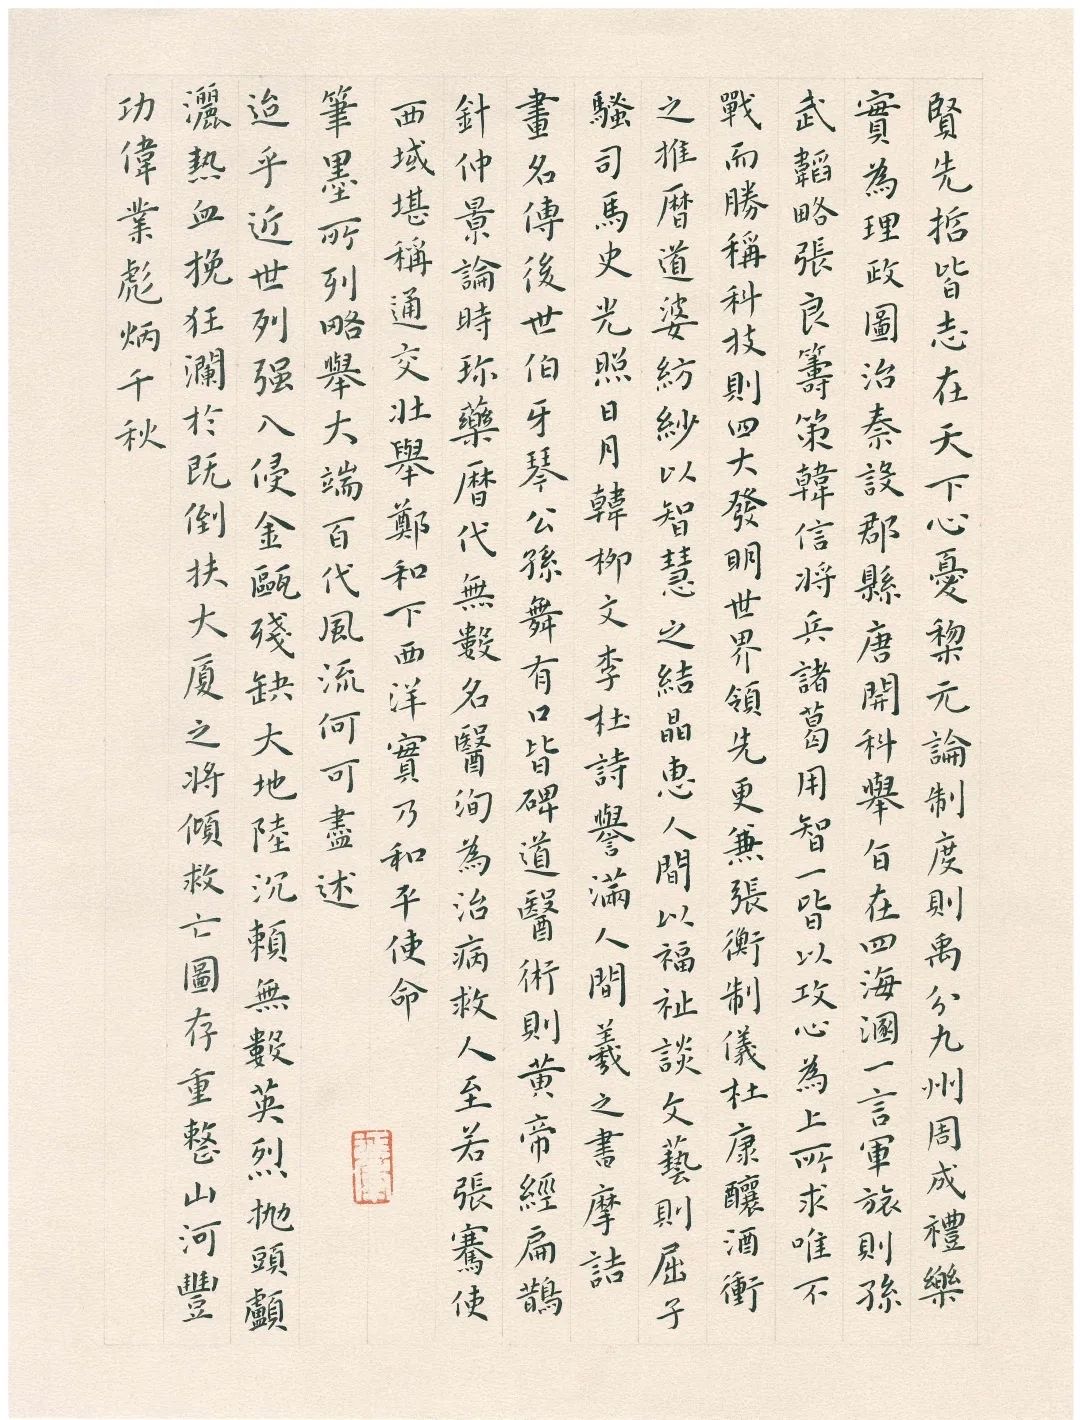 賢先哲皆志在天下心憂黎元論制度則禹分九州周成禮樂
實為理政圖治秦設郡縣唐開科舉旨在四海溷一言軍旅則孫
武韜略張良籌策韓信將兵諸葛用智一皆以攻心為上所求唯不
戰而勝稱科技則四大發明世界領先更兼張衡制儀杜康釀酒衝
之推曆道婆紡紗以智慧之結晶惠人間以福祉談文藝則屈子
騷司馬史光照日月韓柳文李杜詩譽滿人間羲之書摩詰
畫名傳後世伯牙琴公孫舞有口皆碑道醫術則黃帝經扁鵲
針仲景論時珍藥曆代無數名醫洵為治病救人至若張騫使
西域堪稱通交壯舉鄭和下西洋實乃和平使命
筆墨所列略舉大端百代風流何可盡述
迨乎近世列强入侵金甌殘缺大地陸沉賴無數英烈拋頭顱
灑熱血挽狂瀾於既倒扶大厦之將傾救亡圖存重整山河豐
功偉業彪炳千秋